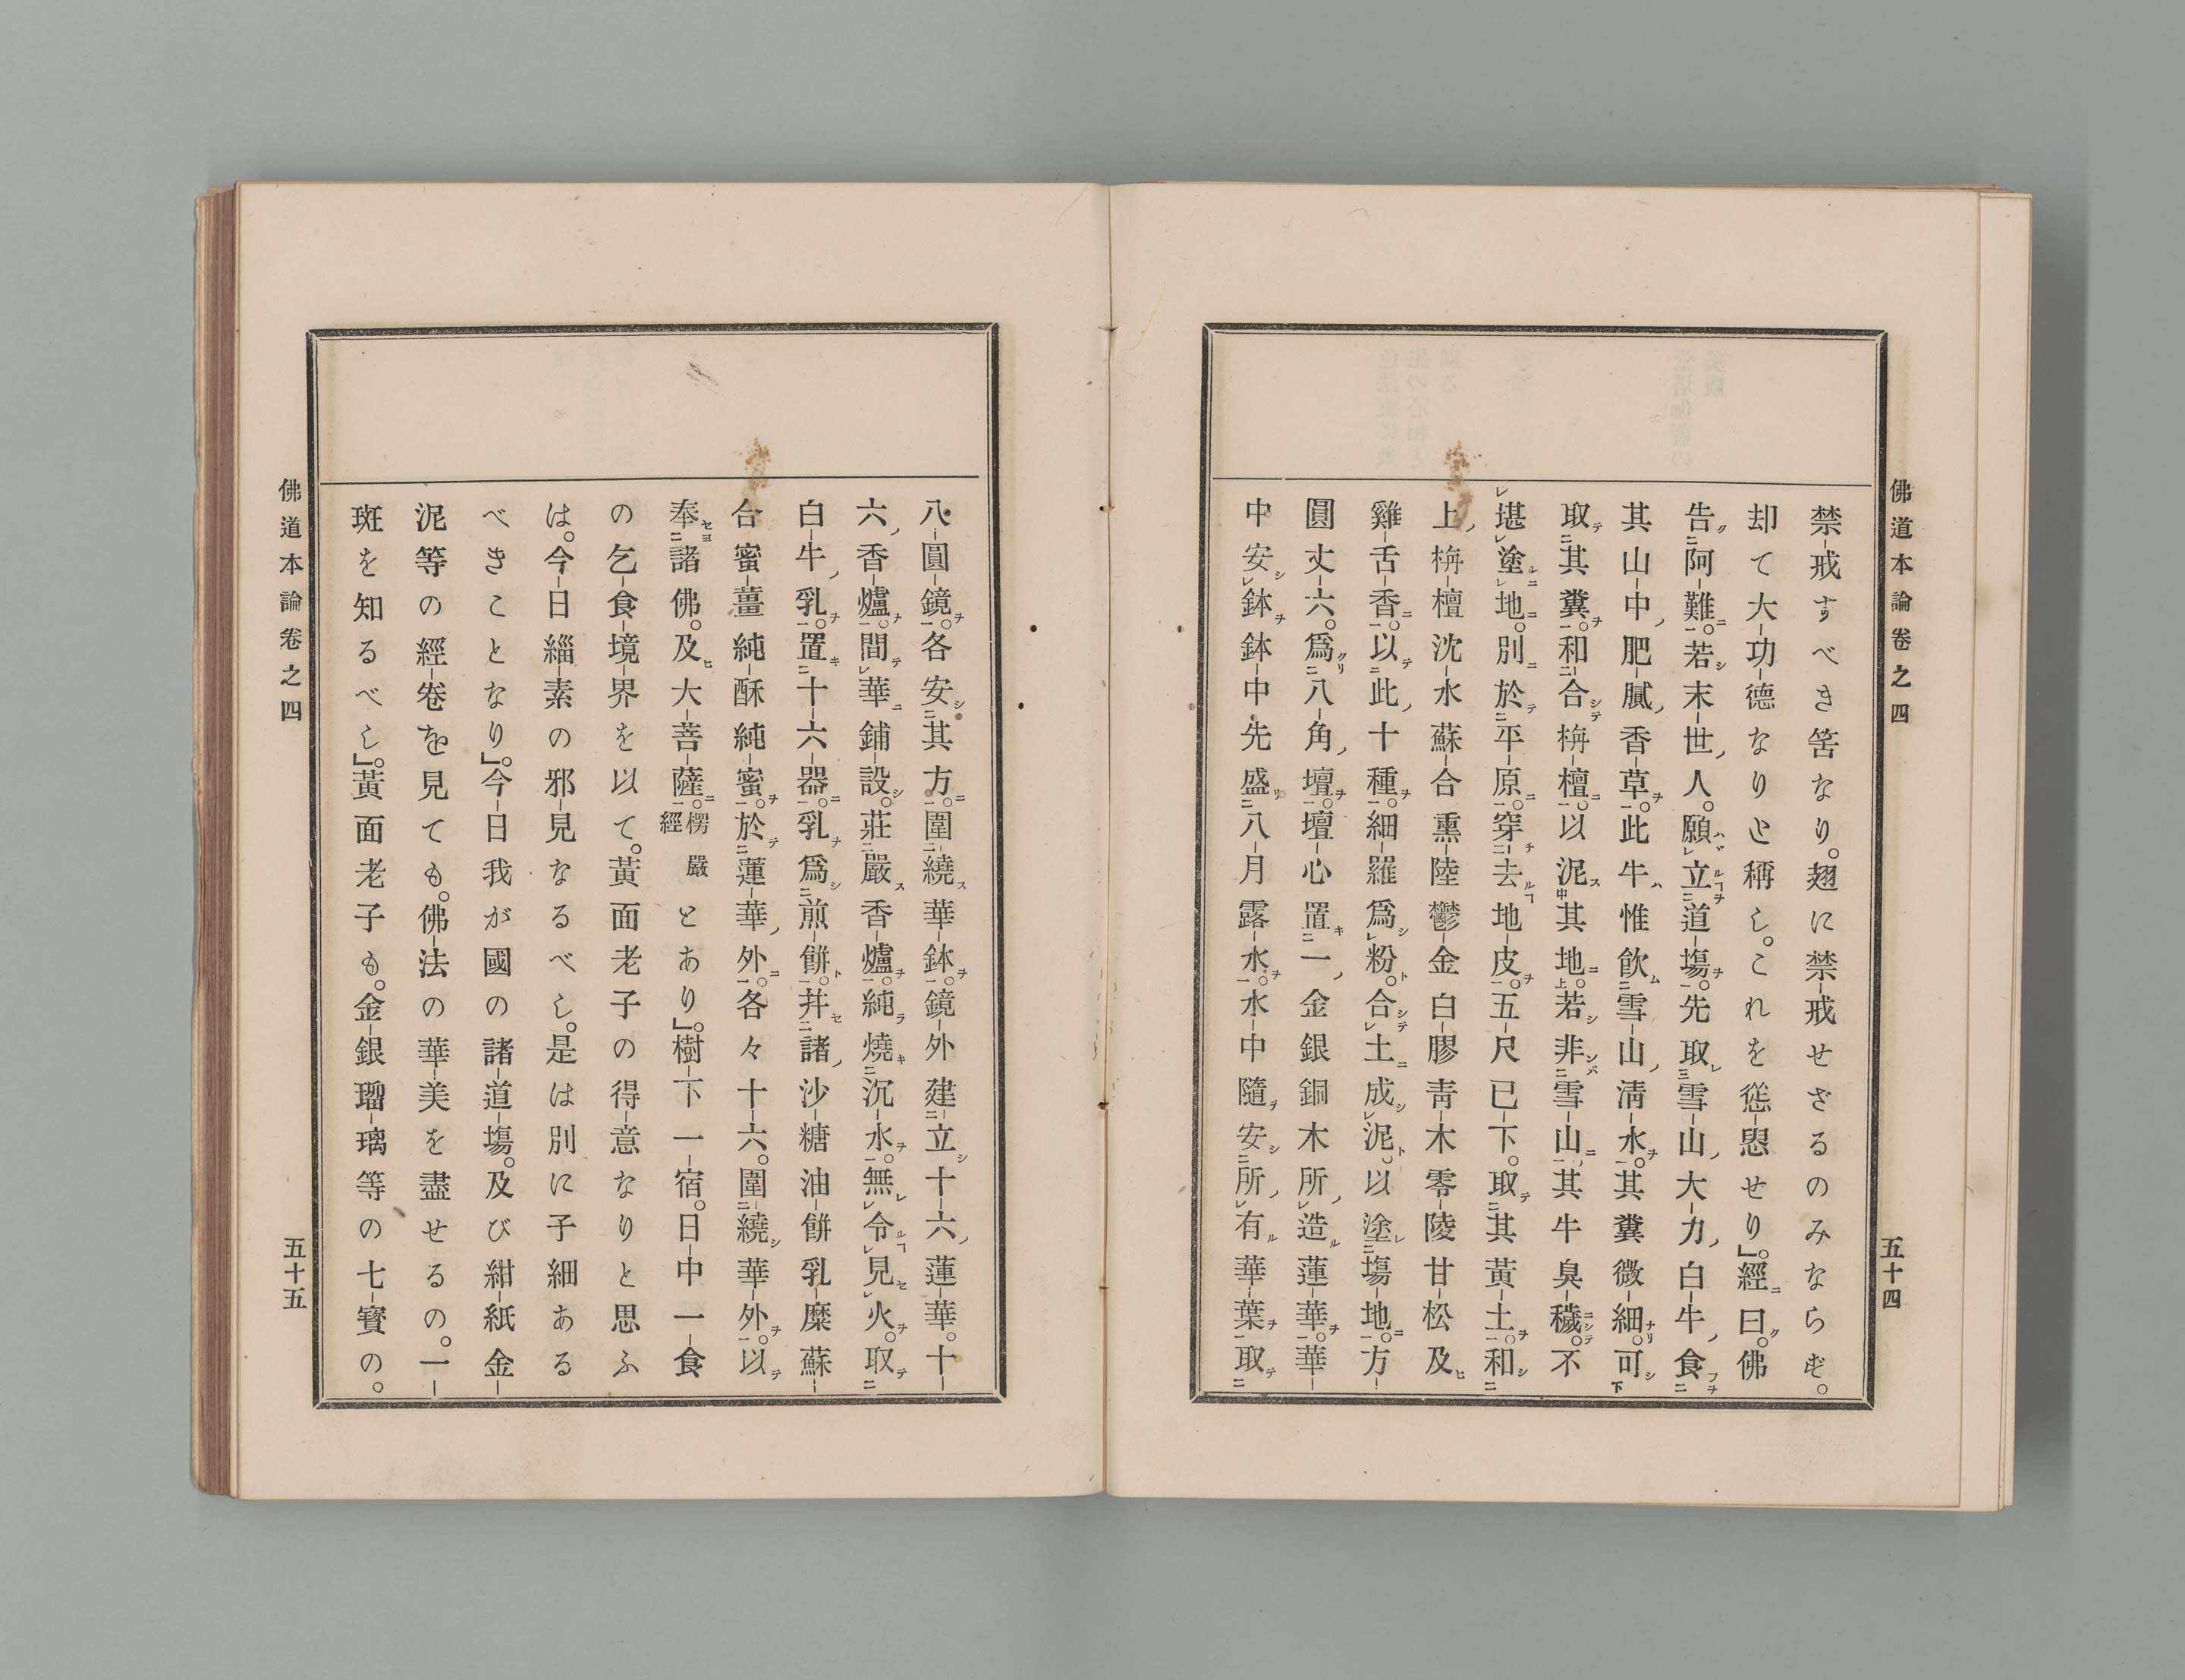 佛道本論卷之四
五十四
禁戒すべき筈なり。翅に禁戒せざるのみならず。
却て大功德なりと稱し。これを慫慂せり』。經曰。佛
告阿難。若末世人。願立道場。先取雪山大力白牛食
其山中肥膩香草。此牛惟飮雪山淸水。其糞微細。可
取其糞。和合栴檀。以泥其地。若非雪山其牛臭穢。不
堪塗地。別於平原。穿去地皮。五尺已下。取其黃土。和
上栴檀沈水蘇合熏陸鬱金白膠靑木零陵甘松及
雞舌香。以此十種。細羅爲粉。合土成泥。以塗場地。方
圓丈六。爲八角壇。壇心置一金銀銅木所造蓮華。華
中安鉢。鉢中先盛八月露水。水中隨安所有華葉取
八圓鏡。各安其方。圍繞華鉢。鏡外建立十六蓮華。十
六香爐。間華鋪設。莊嚴香爐。純燒沉水。無令見火。取
白牛乳。置十六器。乳爲煎餅。幷諸沙糖油餅乳糜蘇
合蜜薑純酥純蜜。於蓮華外。各々十六。圍繞華外。以
奉諸佛。及大菩薩。楞嚴經とあり』。樹下一宿。日中一食
の乞食境界を以て。黃面老子の得意なりと思ふ
は。今日緇素の邪見なるべし。是は別に子細ある
べきことなり』。今日我が國の諸道場。及び紺紙金
泥等の經卷を見ても。佛法の華美を盡せるの。一
斑を知るべし』。黃面老子も。金銀瑠璃等の七寳の。
佛道本論卷之四
五十五